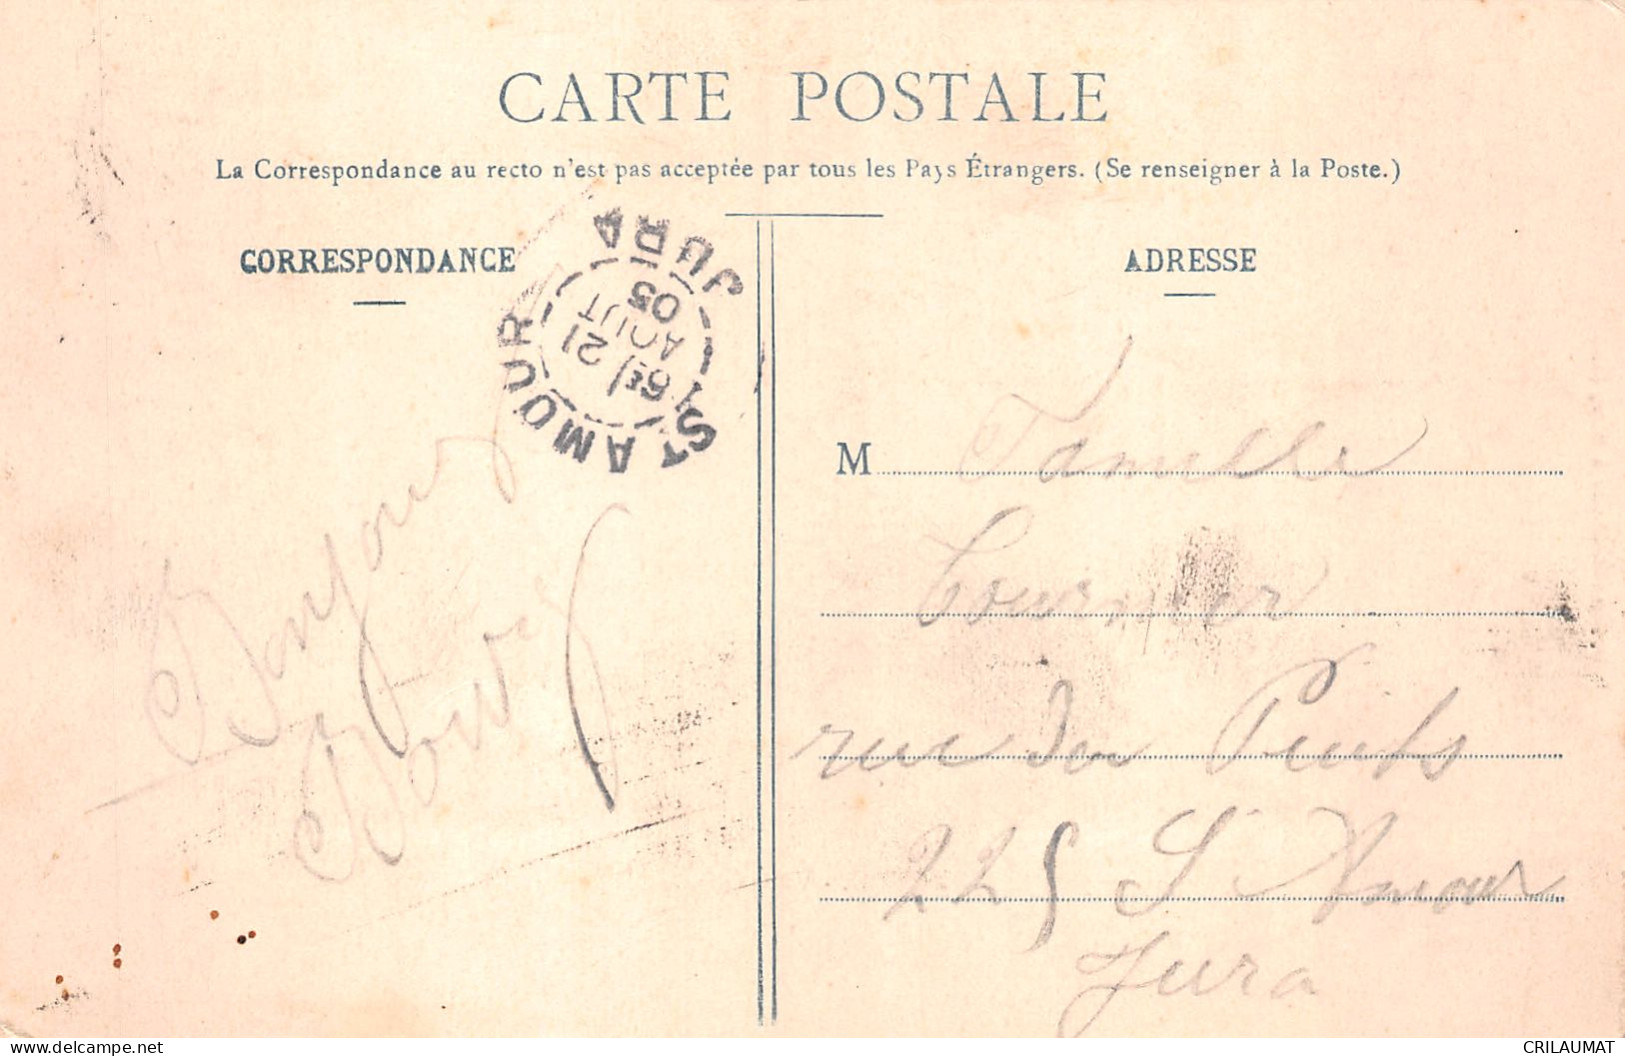 CARTE POSTALE
La Correspondance au recto n'est pas acceptée par tous les Pays Étrangers. (Se renseigner à la Poste.)
CORRESPONDANCE
ST AMOUR JURA
6E
21
AOUT
05
Bonjour
ADRESSE
M Famille
rue du Puits
225 St Amour
Jura
CRILAUMAT